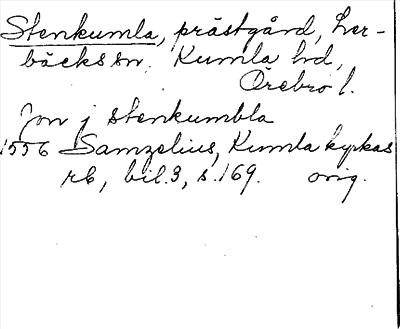 Stenkumla, prästgård, Ler-
bäcks sn. Kumla hd,
Örebro l.
Jon j stenkumbla
1556 Samzelius, Kumla kyrkas
rb, bil.3, s.169. orig.